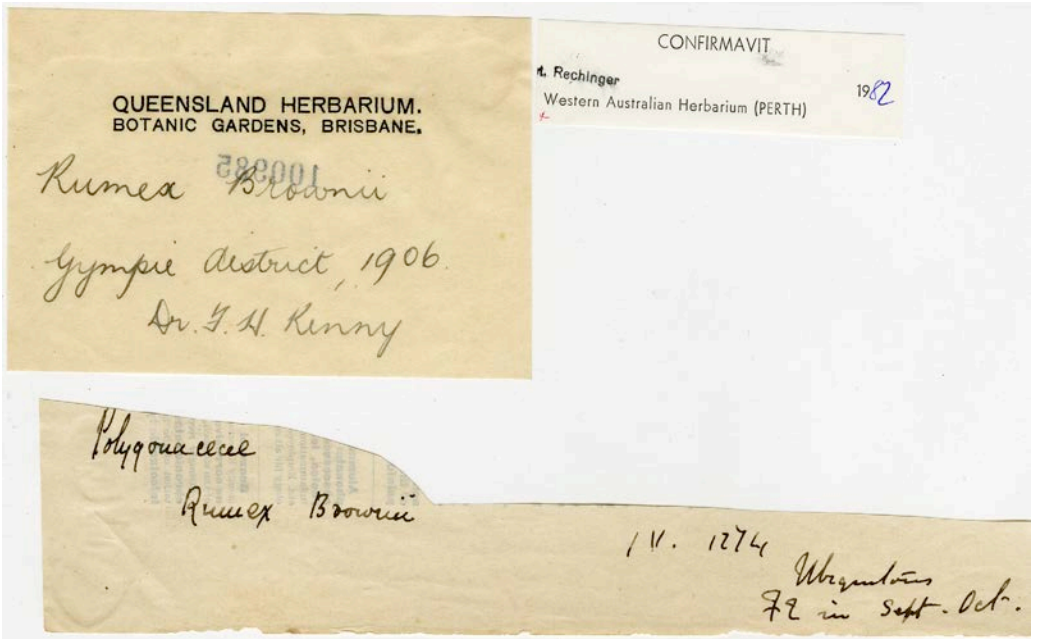 QUEENSLAND HERBARIUM.
BOTANIC GARDENS, BRISBANE.
100985
Rumex Brownii
Gympie district, 1906.
Dr. F. H. Kenny
CONFIRMAVIT
Rechinger
1982
Western Australian Herbarium (PERTH)
Polygonaceae
Rumex Brownii
IV. 1274
Ubiquitous
in Sept. Oct.